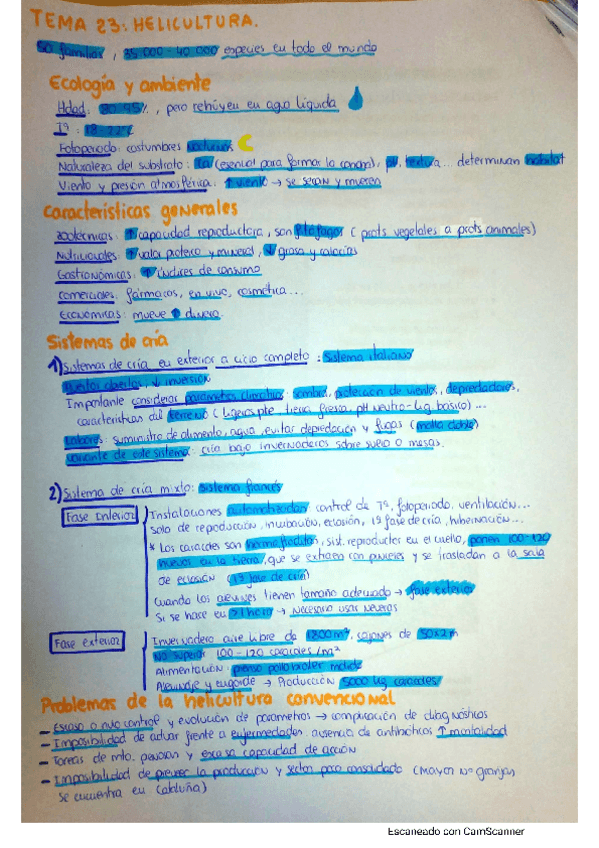 TEMA 23: HELICULTURA.
50 familias, 35.000-40.000 especies en todo el mundo
Ecología y ambiente
Hdad: 80-95%, pero rehúyen en agua líquida
Tª: 18-22ºC
Fotoperiodo: costumbres nocturnas
Naturaleza del substrato: Ca (esencial para formar la concha), pH, textura... determinan habitat
Viento y presion atmosférica: ↑ viento → se secan y mueren
Características generales
Zootécnicas: ↑ capacidad reproductora, son fitófagos (prots vegetales a prots animales)
Nutricionales: ↑ valor proteico y mineral, ↓ grasa y calorías
Gastronómicas: ↑ índices de consumo
Comerciales: fármacos, en vivo, cosmética...
Económicas: mueve ↑ dinero.
Sistemas de cría
1) Sistemas de cría en exterior a ciclo completo: Sistema italiano
abiertos, ↓ inversión
Importante considerar parámetros climáticos: sombra, protección de vientos, depredadores,
características del terreno (ligera pte, tierra fresca, pH neutro-lig. básico)...
Labores: suministro de alimento, agua, evitar depredación y fugas (malla doble)
Variante de este sistema: cría bajo invernaderos sobre suelo o mesas.
2) Sistema de cría mixto: sistema francés
Fase Interior
Instalaciones automatizadas control de Tª, fotoperiodo, ventilación...
Sala de reproducción, incubación, eclosión, 1ª fase de cría, hibernación...
* Los caracoles son hermafroditas, sist. reproductor en el cuello, ponen 100-120
huevos en la tierra, que se extraen con pinceles y se trasladan a la sala
de eclosión (1ª fase de cría)
Cuando los alevines tienen tamaño adecuado → fase exterior
Si se hace en → necesario usar neveras
Fase exterior
Invernadero aire libre de 1200 m², cajones de 50x2 m
No superar 100-120 caracoles/m²
Alimentación: pienso pollo broiler molido
Alevinaje y engorde → Producción 5000 kg caracoles
Problemas de la helicultura convencional
- Escaso o nulo control y evolución de parámetros → complicación de diagnósticos
- Imposibilidad de actuar frente a enfermedades, ausencia de antibióticos ↑ mortalidad
- Tareas de mto. penosas y escasa capacidad de acción
- Imposibilidad de preveer la producción y sector poco consolidado (Mayor nº granjas
se encuentra en Cataluña)
Escaneado con CamScanner